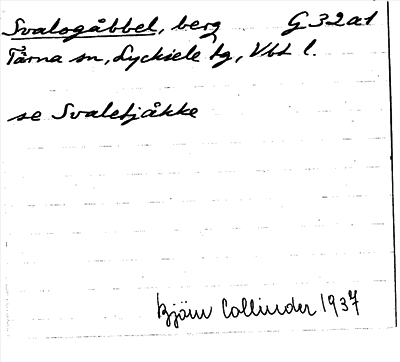 Svalogåbbel, berg G 32 a1
Tärna sn, Lycksele lg, Vbt l.
se Svaletjåkke
Björn Collinder 1937